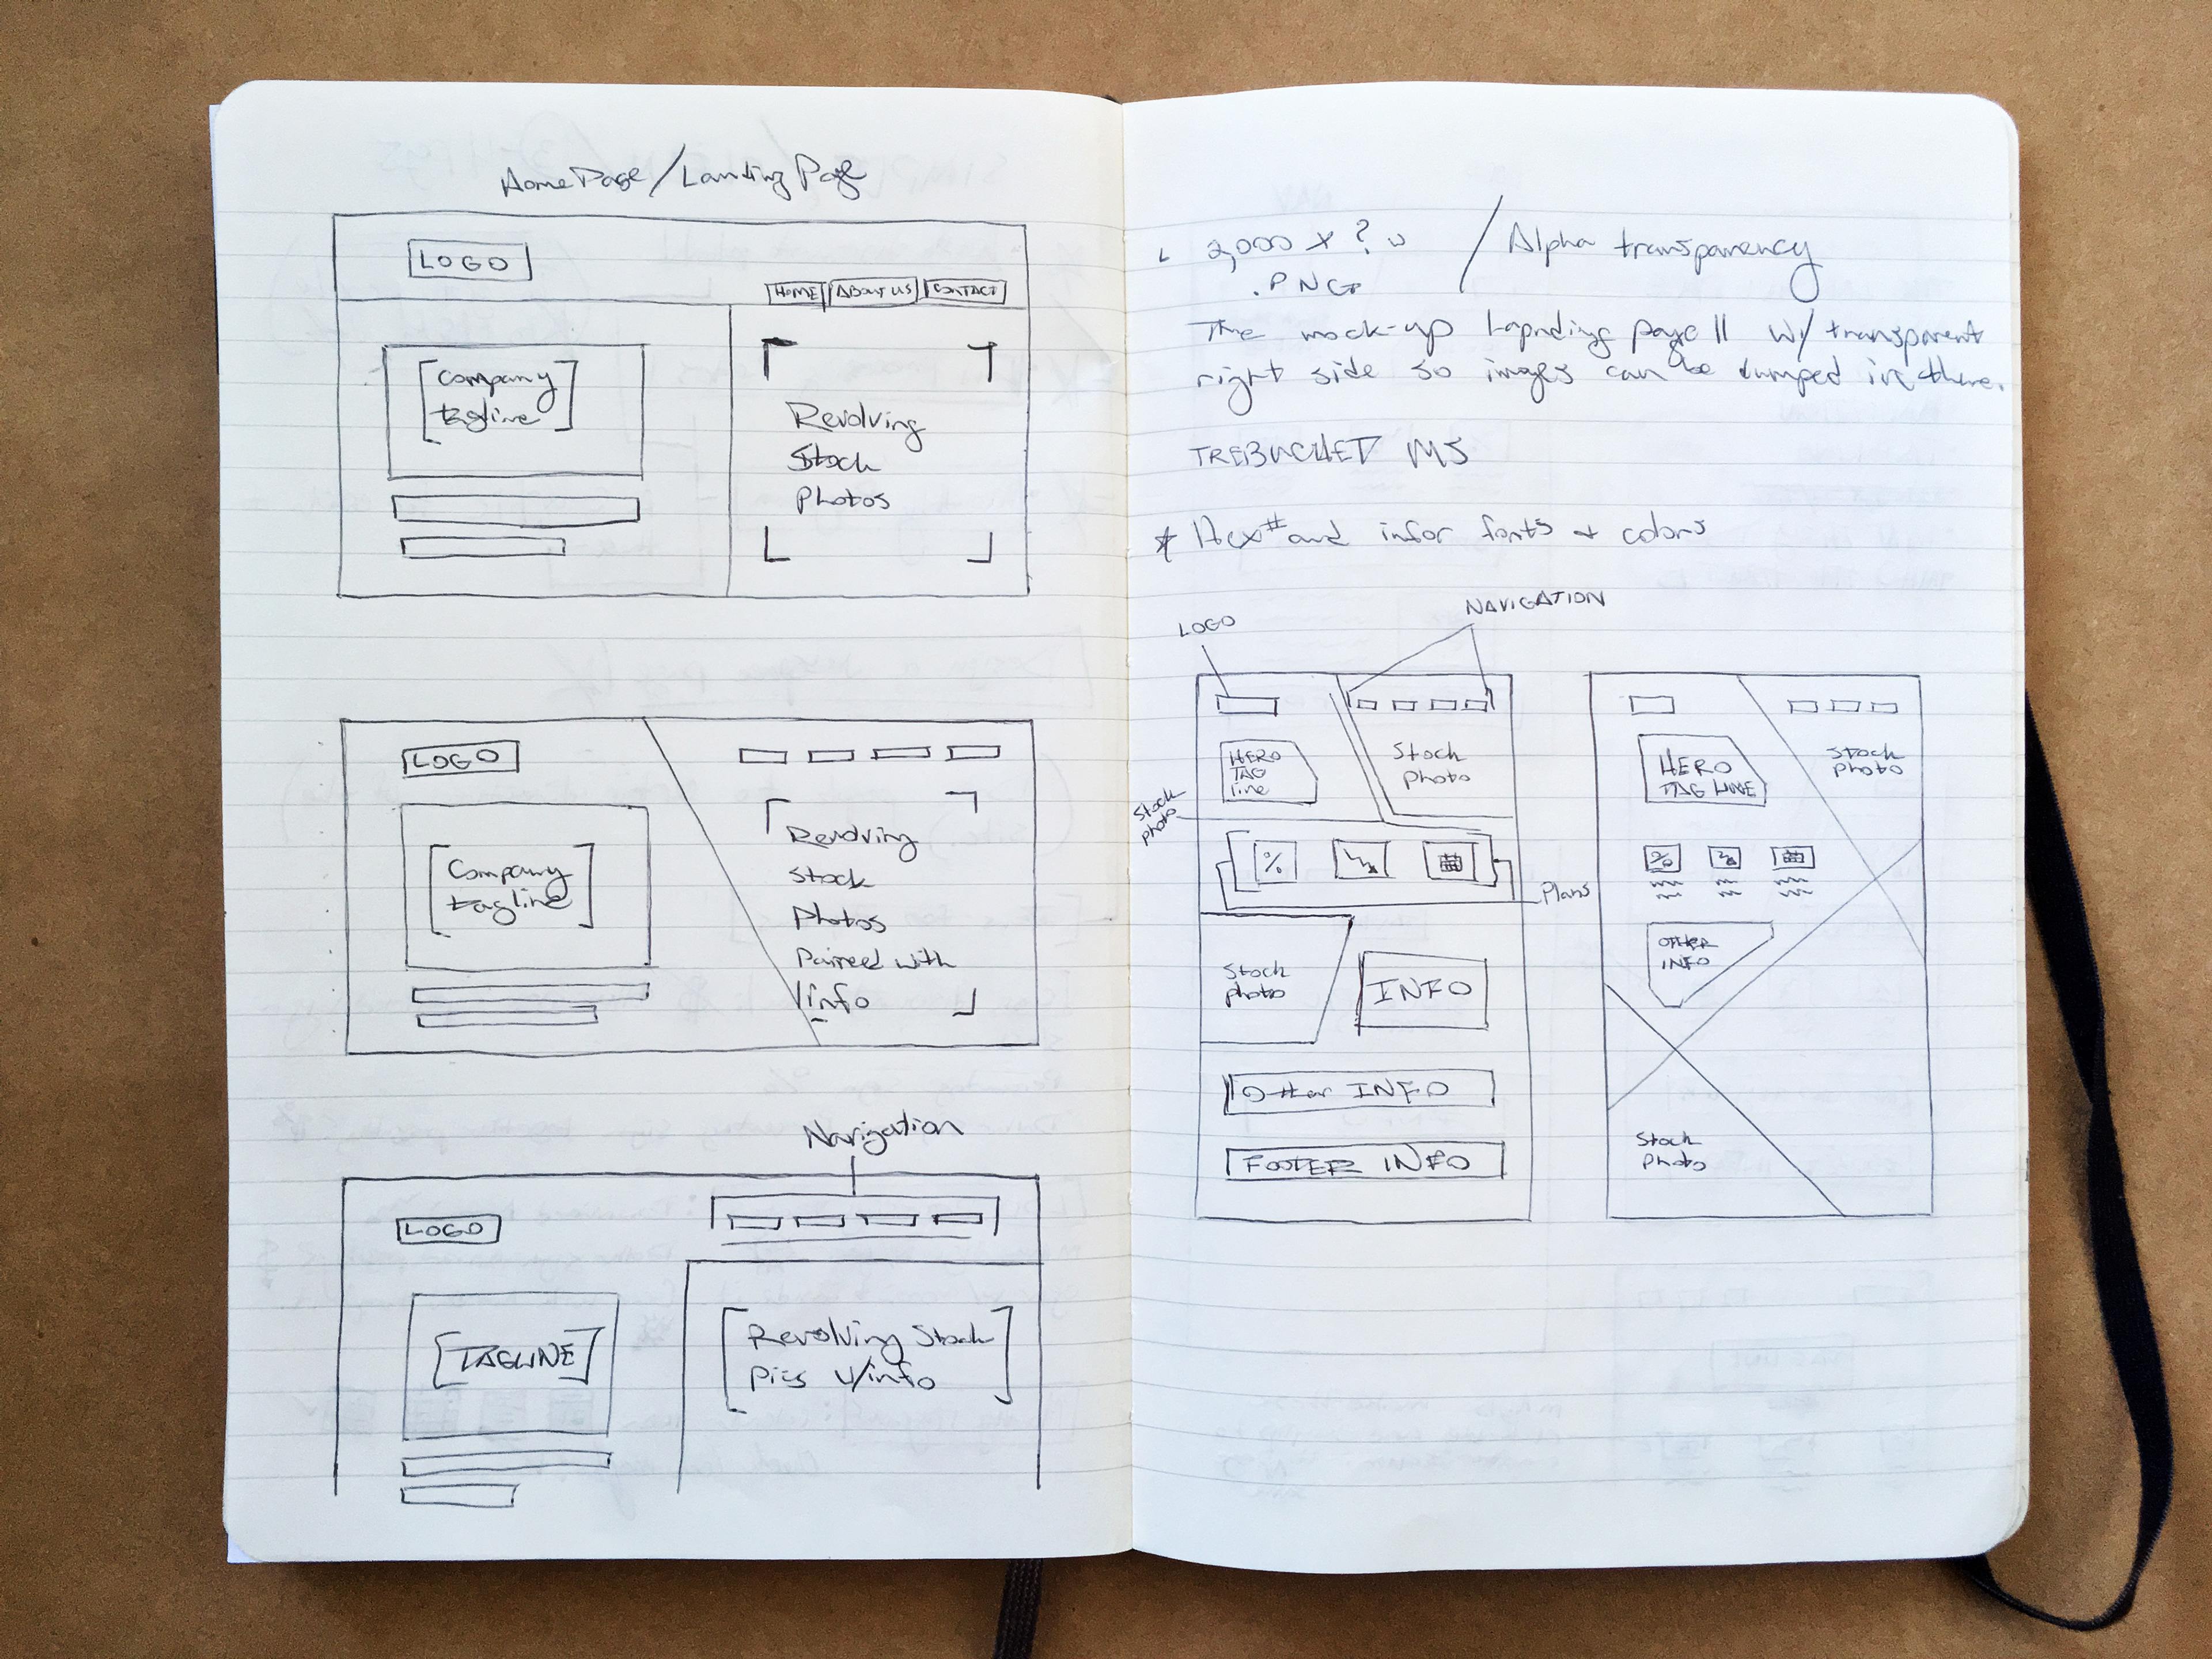 HomePage/Landing Page
LOGO
HOME ABOUT US CONTACT
Company
tagline
Revolving
Stock
Photos
LOGO
Company
tagline
Revolving
Stock
Photos
Paired with
info
Navigation
LOGO
TAGLINE
Revolving Stock
Pics w/info
2,000 x ? / Alpha transparency
.PNG
The mock-up Lapnding page II w/ transparent
right side so images can be dumped in there.
TREBUCHET MS
* Hex# and infor fonts & colors
LOGO
NAVIGATION
HERO
TAG
line
Stock
photo
Stock
photo
%
Plans
Stock
photo
INFO
Other INFO
FOOTER INFO
HERO
TAG LINE
Stock
photo
%
OTHER
INFO
Stock
photo